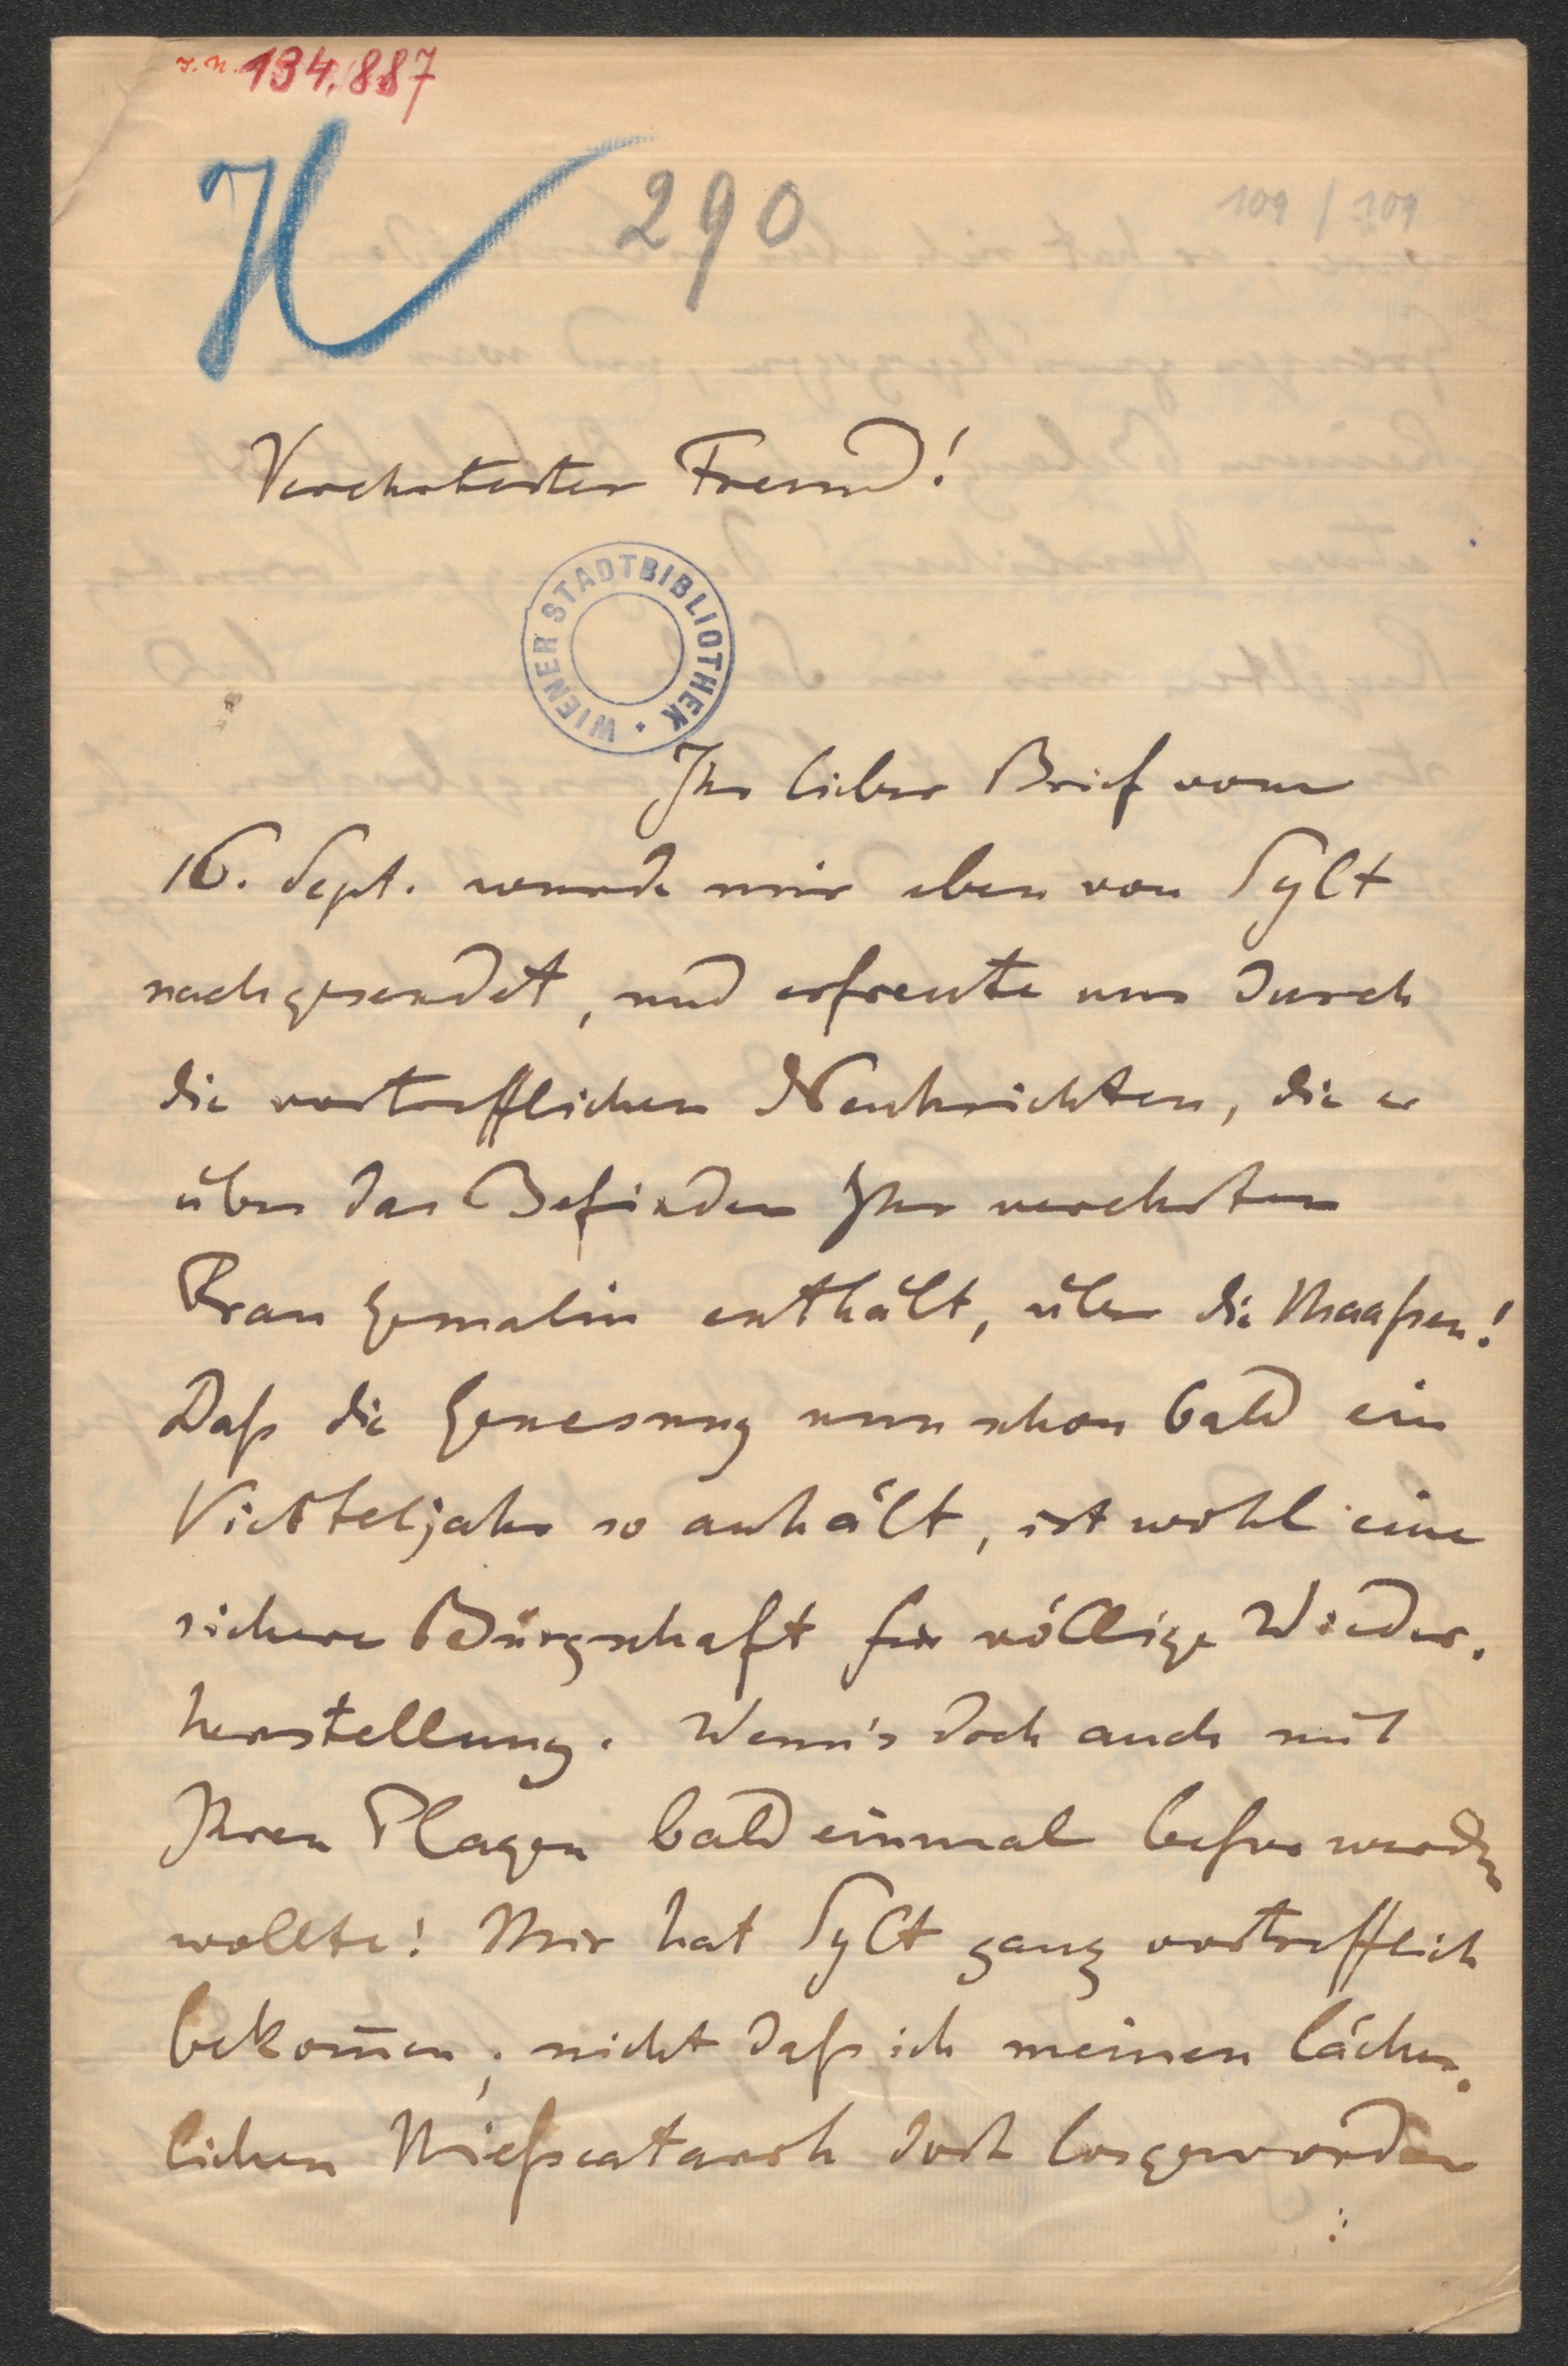 I.N. 134.887
H 290
109 / 109
Verehrtester Freund!
WIENER STADTBIBLIOTHEK
Ihr lieber Brief vom
16. Sept. wurde mir eben von Sylt
nachgesendet, und erfreute uns durch
die vortrefflichen Nachrichten, die er
über das Befinden Ihrer verehrten
Frau Gemalin enthält, über die Maaßen!
Daß die Genesung nun schon bald ein
Vierteljahr so anhält, ist wohl eine
sichere Bürgschaft für völlige Wieder-
herstellung. Wenn's doch auch mit
Ihren Plagen bald einmal beßer werden
wollte! Mir hat Sylt ganz vortrefflich
bekom̄en; nicht daß ich meinen lächer-
lichen Nießcatarrh dort losgeworden